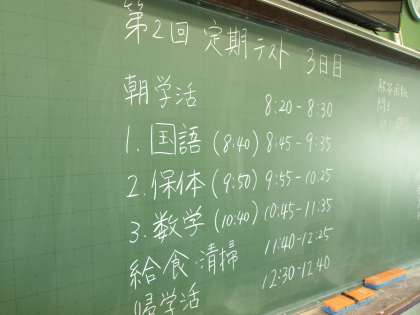 第2回 定期テスト 3日目
朝学活 8:20-8:30
1. 国語 (8:40) 8:45-9:35
2. 保体 (9:50) 9:55-10:25
3. 数学 (10:40) 10:45-11:35
給食・清掃 11:40-12:25
帰学活 12:30-12:40